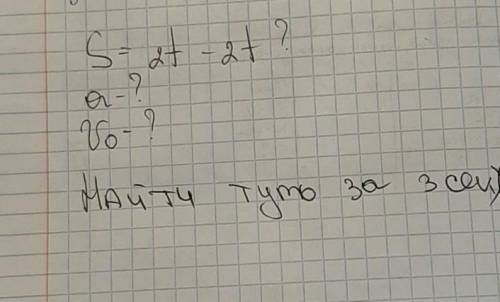 S = 2t - 2t ?
a - ?
V₀ - ?
Найти туть за 3 сек)